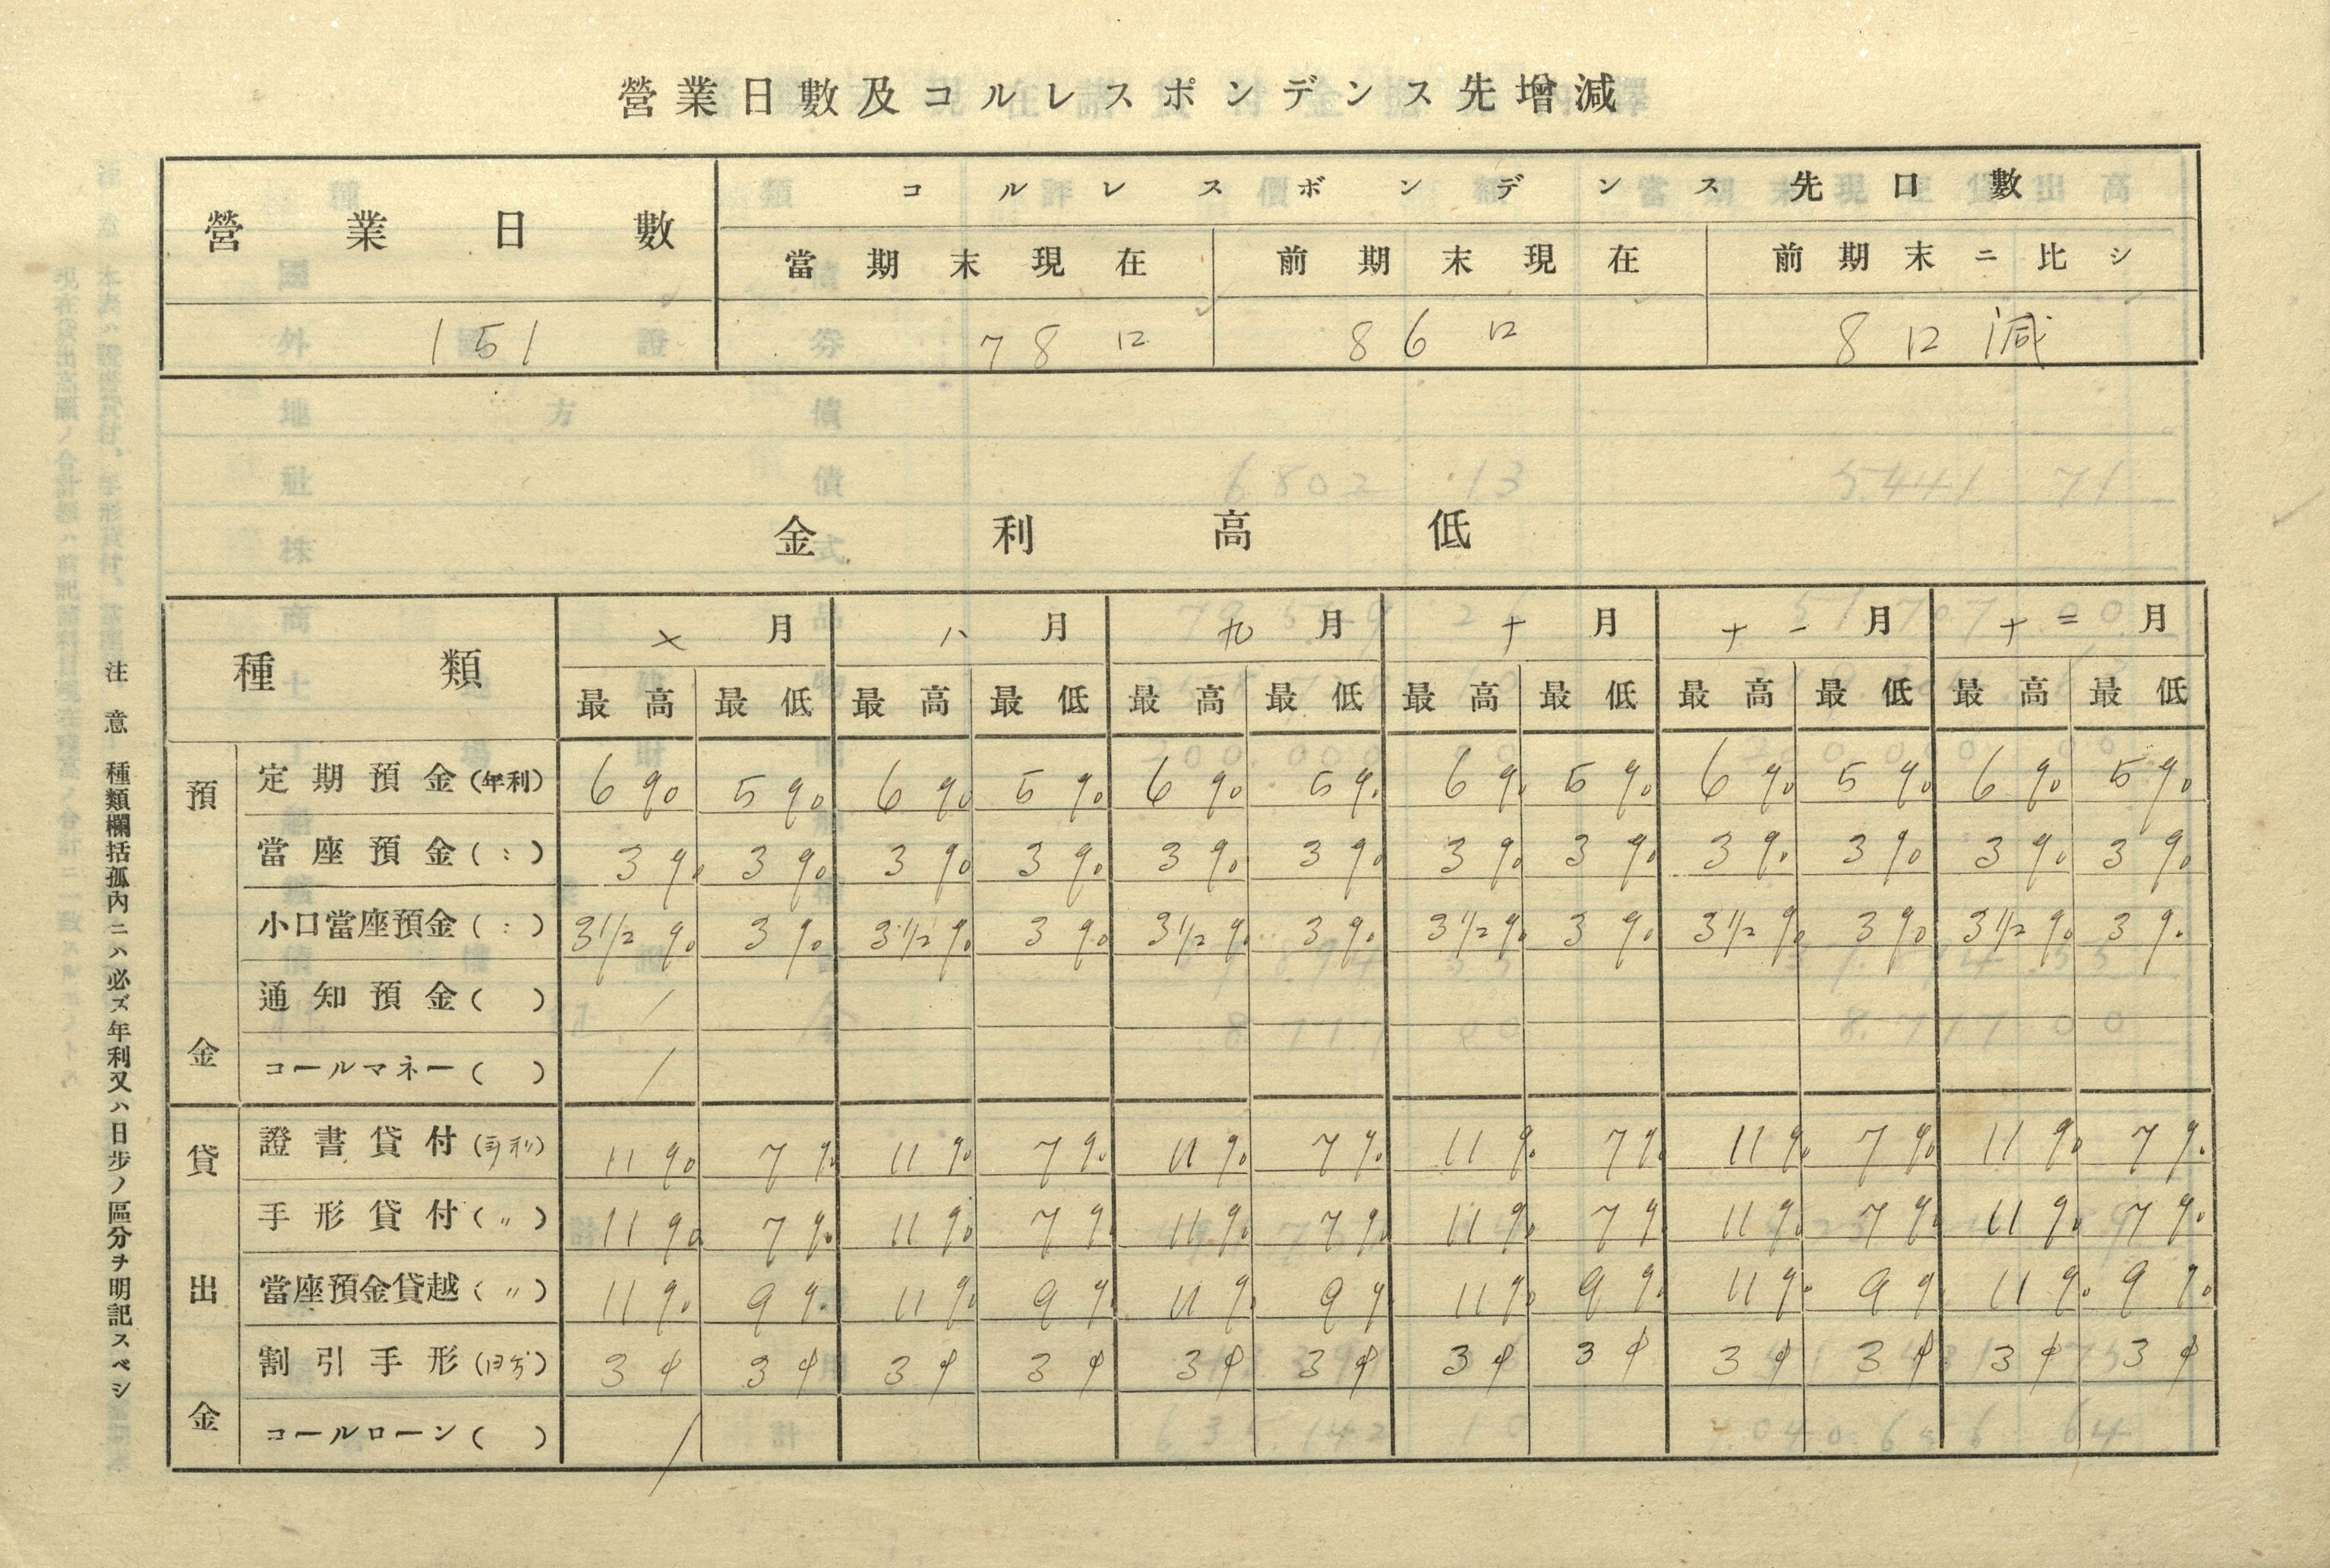 營業日數及コルレスポンデンス先增減
營業日數 コルレスポンデンス先口數
當期末現在 前期末現在 前期末ニ比シ
151 78口 86口 8口減
金利高低
種類 七月 八月 九月 十月 十一月 十二月
最高 最低 最高 最低 最高 最低 最高 最低 最高 最低 最高 最低
預金
定期預金(年利) 6% 5% 6% 5% 6% 5% 6% 5% 6% 5% 6% 5%
當座預金(〃) 3% 3% 3% 3% 3% 3% 3% 3% 3% 3% 3% 3%
小口當座預金(〃) 3 1/2% 3% 3 1/2% 3% 3 1/2% 3% 3 1/2% 3% 3 1/2% 3% 3 1/2% 3%
通知預金( ) /
コールマネー( ) /
貸出金
證書貸付(年利) 11% 7% 11% 7% 11% 7% 11% 7% 11% 7% 11% 7%
手形貸付(〃) 11% 7% 11% 7% 11% 7% 11% 7% 11% 7% 11% 7%
當座預金貸越(〃) 11% 9% 11% 9% 11% 9% 11% 9% 11% 9% 11% 9%
割引手形(日歩) 3¢ 3¢ 3¢ 3¢ 3¢ 3¢ 3¢ 3¢ 3¢ 3¢ 3¢ 3¢
コールローン( ) /
注意 種類欄括孤內ニハ必ズ年利又ハ日步ノ區分ヲ明記スベシ